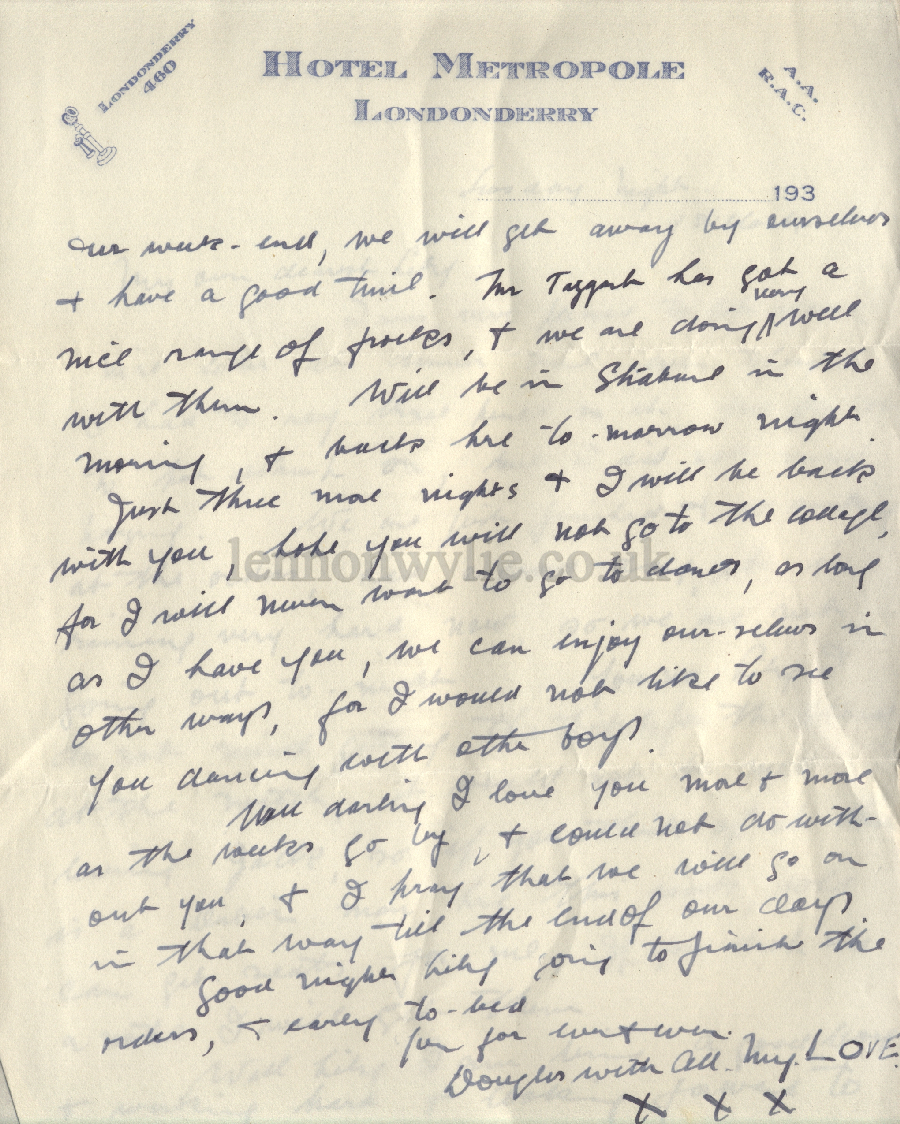 LONDONDERRY 460
HOTEL METROPOLE
LONDONDERRY
A.A.
R.A.C.
193
our week-end, we will get away by ourselves
+ have a good time. Mr Taggart has got a
very
nice range of frocks, + we are doing well
with them. Will be in Strabane in the
morning, + back here to-morrow night
Just three more nights + I will be back
with you, hope you will not go to the college,
lennonwylie.co.uk
for I will never want to go to dances, as long
as I have you, we can enjoy our-selves in
other ways, for I would not like to see
you dancing with other boys.
Well darling I love you more + more
as the weeks go by, + could not do with-
out you, + I pray that we will go on
in that way till the end of our days
Good night going to finish the
orders, + early to-bed
for ever + ever.
Douglas with All My LOVE.
X X X